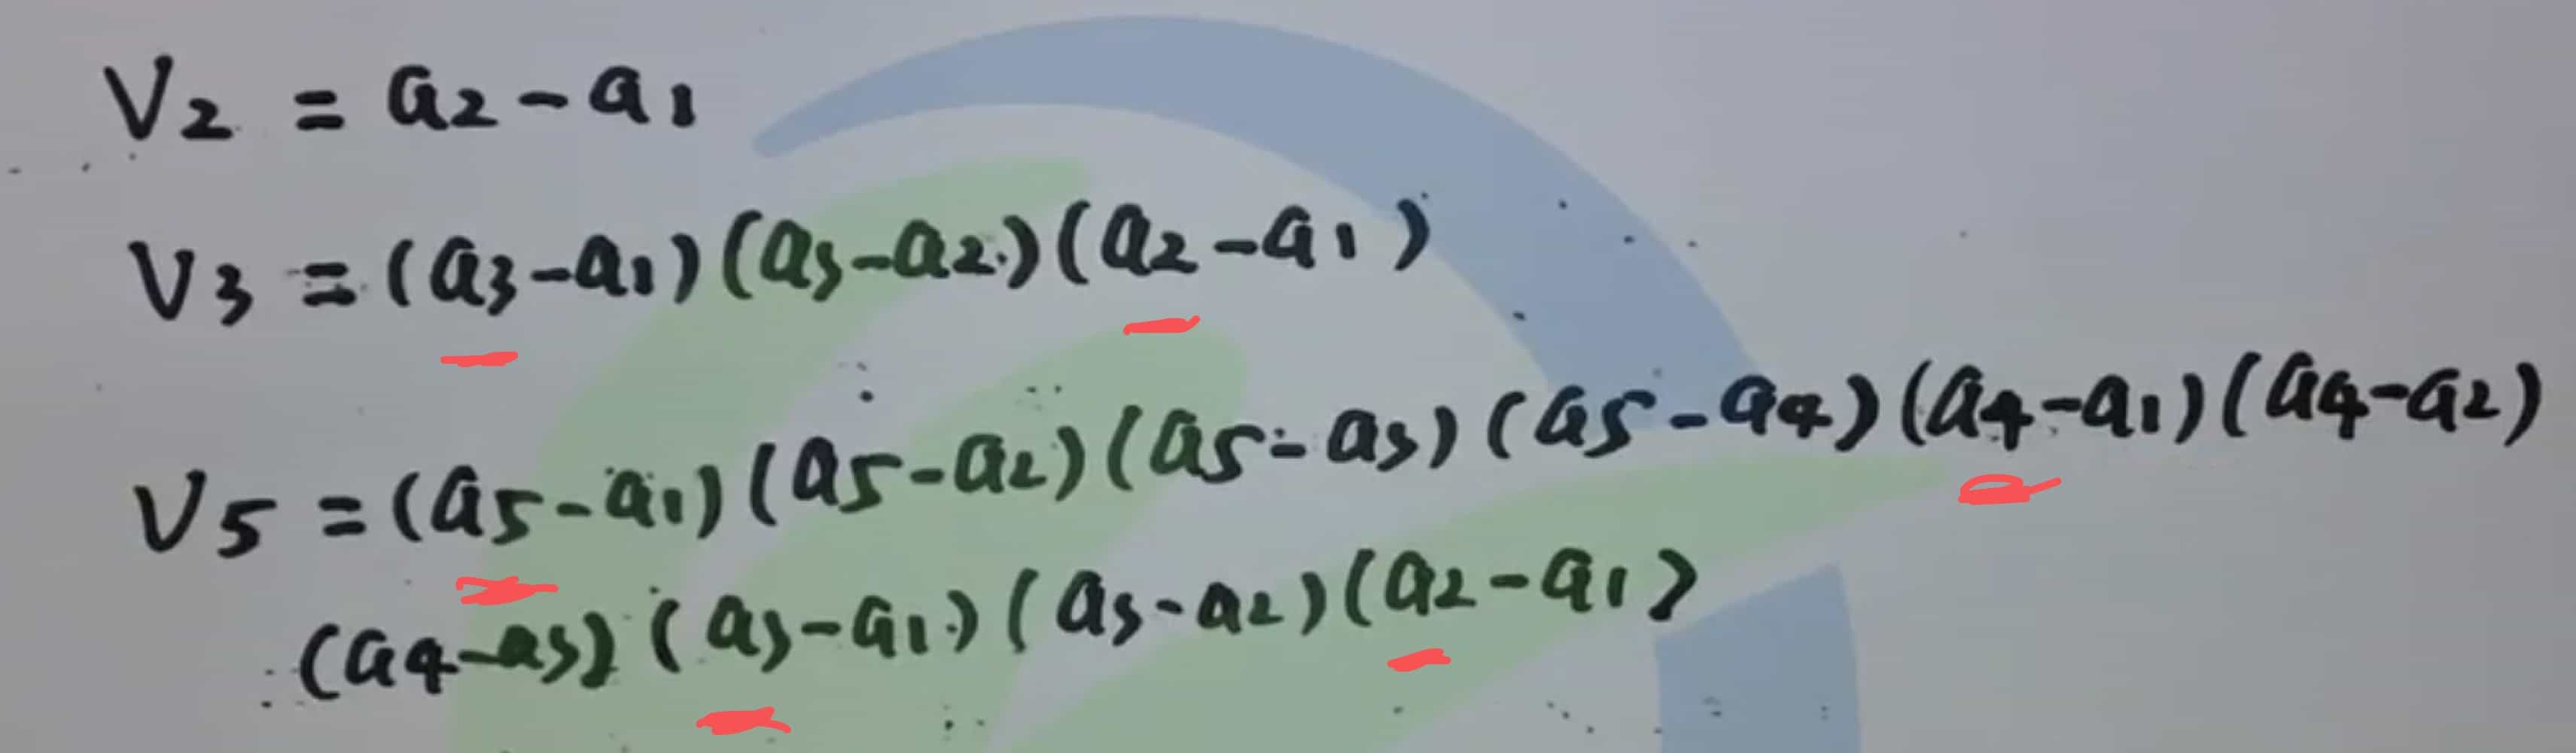 V2 = a2 - a1
V3 = (a3 - a1)(a3 - a2)(a2 - a1)
V5 = (a5 - a1)(a5 - a2)(a5 - a3)(a5 - a4)(a4 - a1)(a4 - a2)
(a4 - a3)(a3 - a1)(a3 - a2)(a2 - a1)